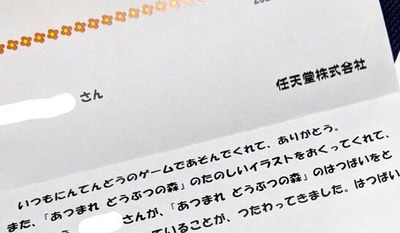 さん
任天堂株式会社
いつもにんてんどうのゲームであそんでくれて、ありがとう。
また、「あつまれ どうぶつの森」のたのしいイラストをおくってくれて、
さんが、「あつまれ どうぶつの森」のはつばいをと
ていることが、つたわってきました。はつばい